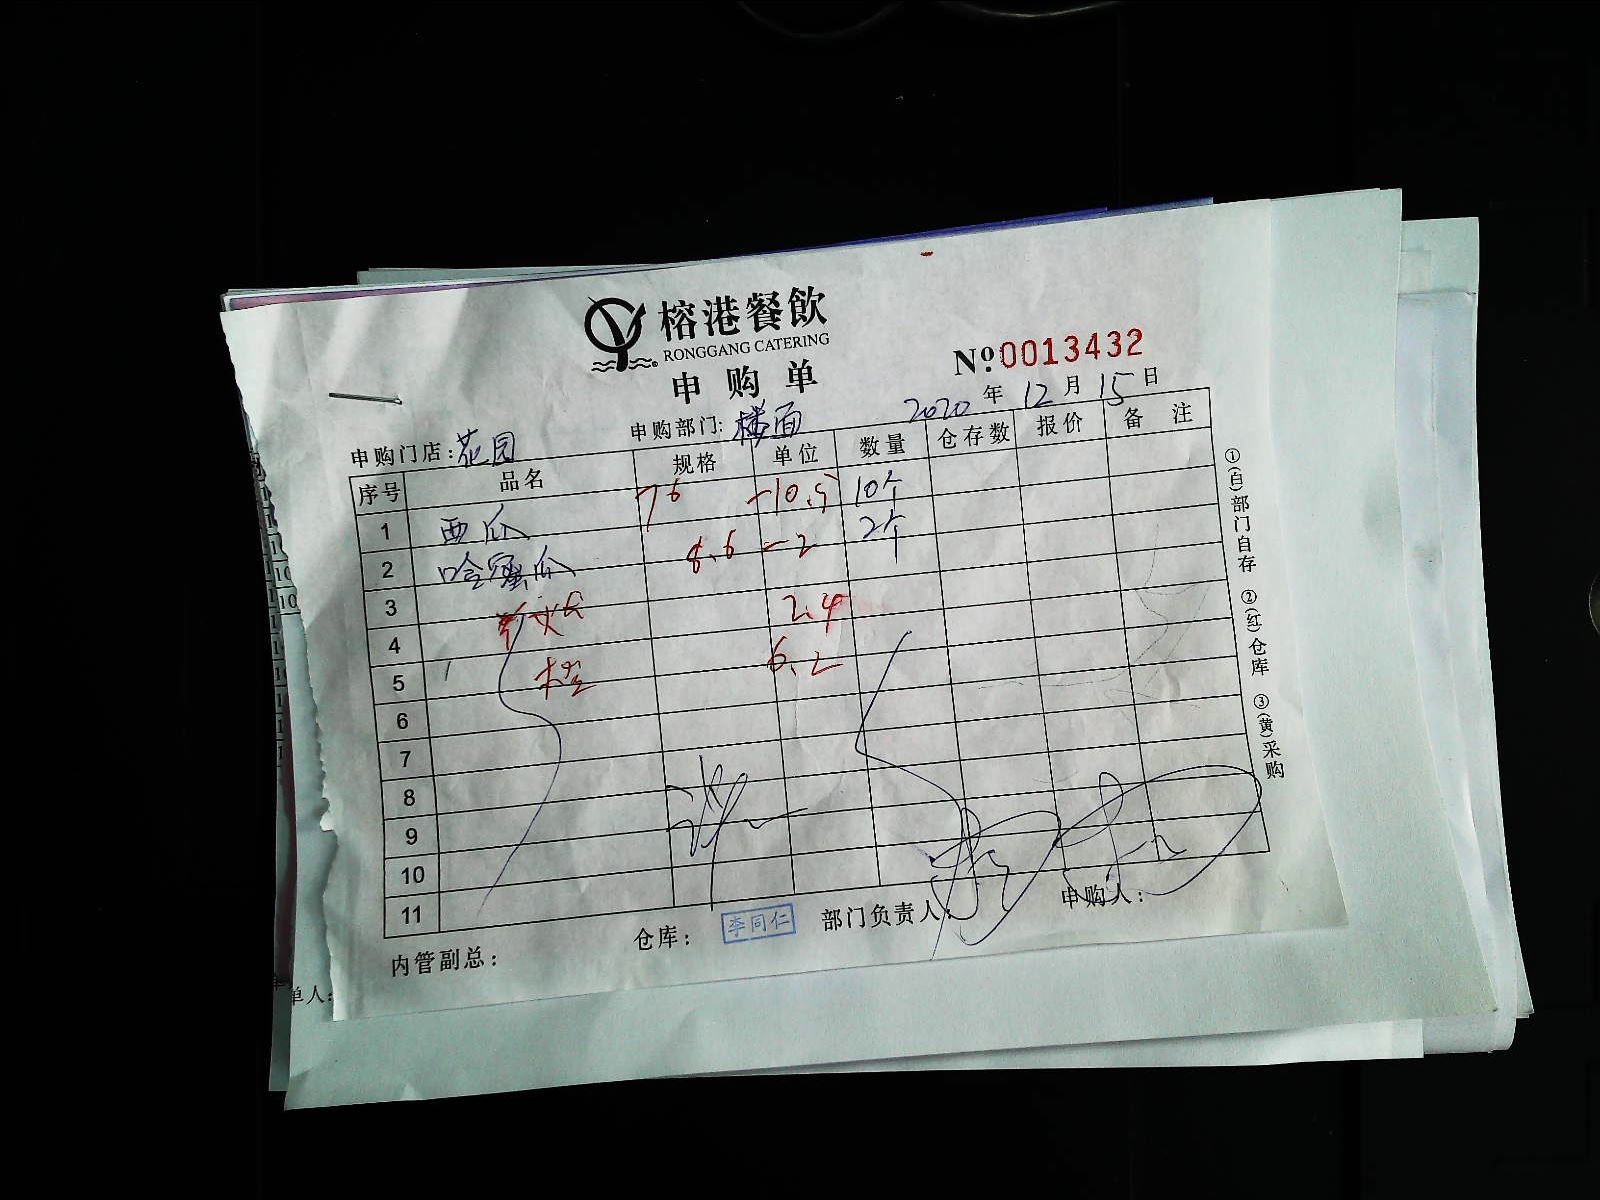 榕港餐飲
RONGGANG CATERING
申购单
№0013432
2020年12月15日
申购门店:花园
申购部门:楼面
序号 品名 规格 单位 数量 仓存数 报价 备注
1 西瓜 76 -10.5 10个
2 哈蜜瓜 8.6 -2 2个
3 2.4
4 橙 6.2
5
6
7
8
9
10
11
内管副总:
仓库: 李同仁
部门负责人:
申购人:
①(白)部门自存 ②(红)仓库 ③(黄)采购
单人: